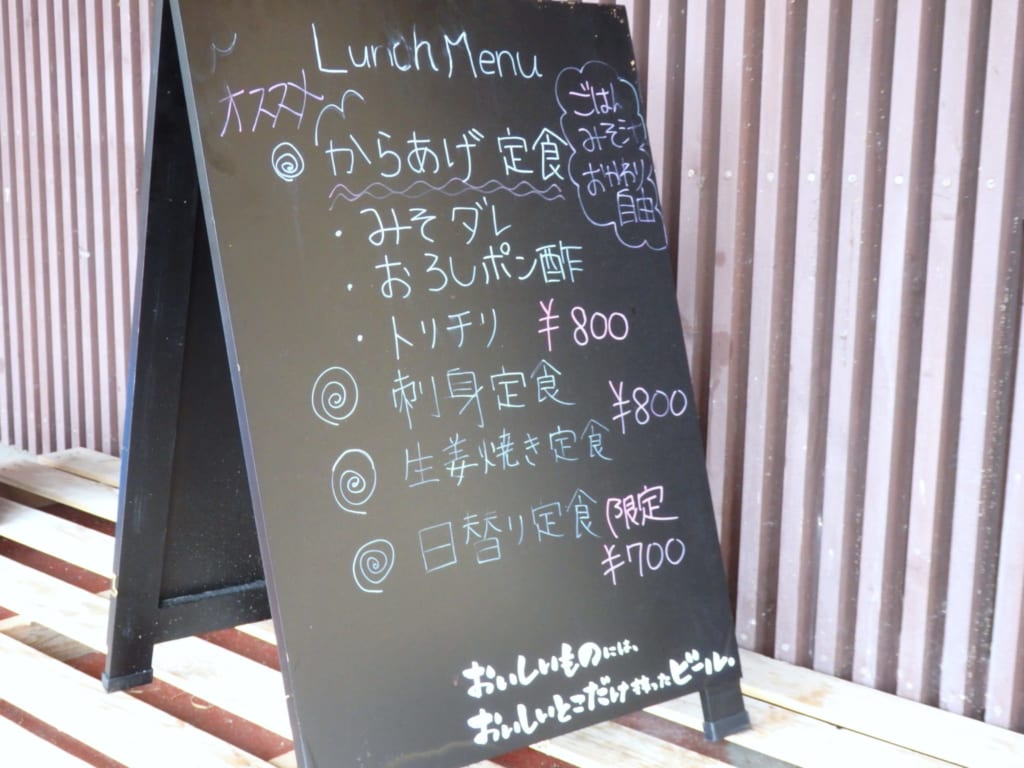 Lunch Menu
オススメ
からあげ定食
ごはん
みそ汁
おかわり
自由
・みそダレ
・おろしポン酢
・トリチリ ¥800
刺身定食 ¥800
生姜焼き定食
日替り定食 限定
¥700
おいしいものには、
おいしいとこだけ搾ったビール。